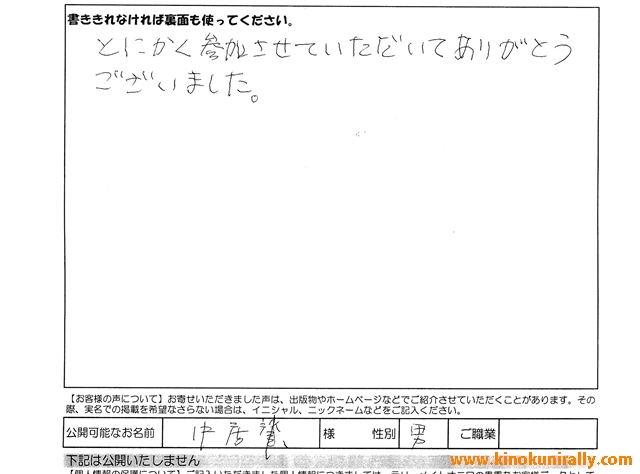 書ききれなければ裏面も使ってください。
とにかく参加させていただいてありがとう
ございました。
【お客様の声について】お寄せいただきました声は、出版物やホームページなどでご紹介させていただくことがあります。その
際、実名での掲載を希望なさらない場合は、イニシャル、ニックネームなどをご記入ください。
公開可能なお名前 中居 様 性別 男 ご職業
下記は公開いたしません
www.kinokunirally.com